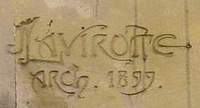 LAVIROTTE
ARCH. 1899.